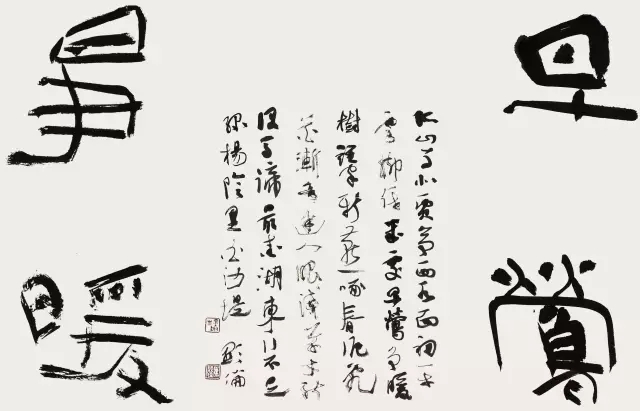 早鶯
爭暖
孤山寺北賈亭西水面初平
雲腳低幾處早鶯爭暖
樹誰家新燕啄春泥亂
花漸欲迷人眼淺草才能
沒馬蹄最愛湖東行不足
綠楊陰里白沙堤